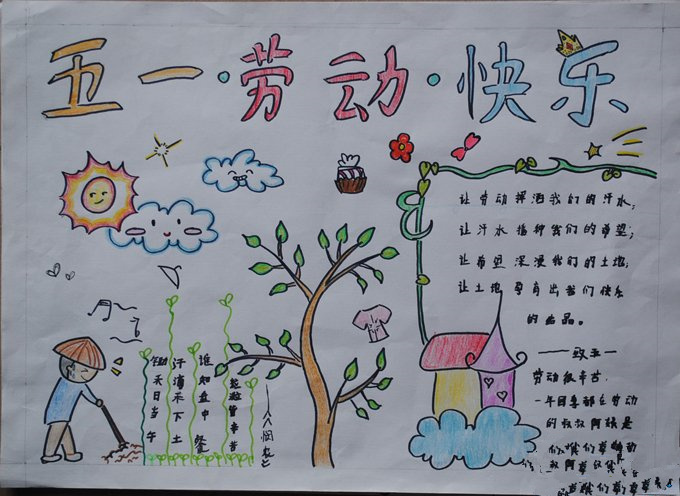 五一·劳动·快乐
让劳动挥洒我们的汗水;
让汗水播种我们的希望;
让希望我们的土地;
让土地孕育出我们快乐
的出品。
——致五一
劳动很辛苦,
一年四季都劳动
的叔叔阿姨是
锄禾日当午
汗滴禾下土
谁知盘中餐
粒粒皆辛苦
——《悯农》